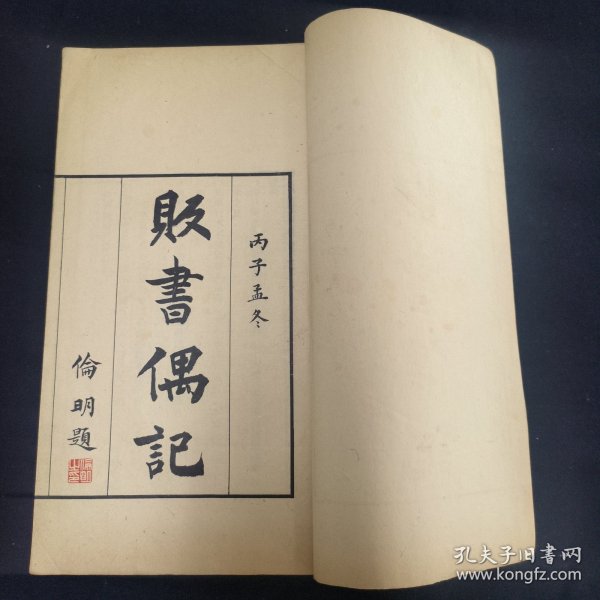 丙子孟冬
販書偶記
倫明題
孔夫子旧书网
www.kongfz.com